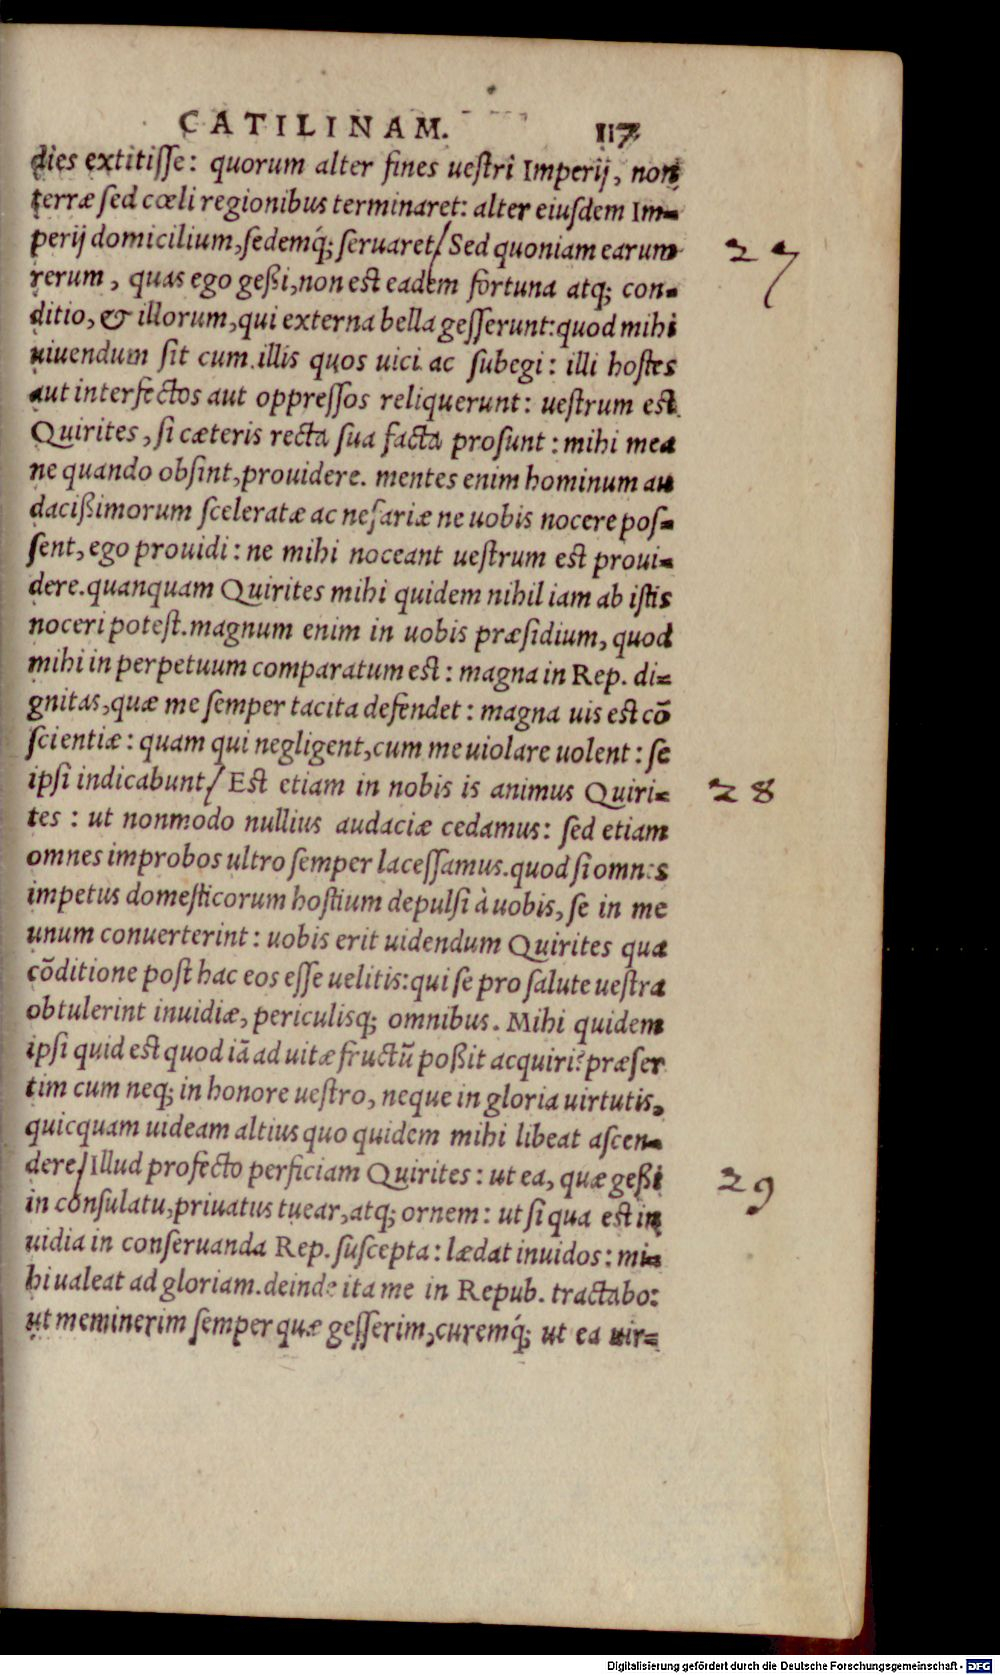 CATILINAM. 117
dies extitiſſe: quorum alter fines ueſtri Imperij, non
terræ ſed cœli regionibus terminaret: alter eiuſdem Im=
perij domicilium, ſedemq́; ſeruaret/ Sed quoniam earum
27
rerum, quas ego geßi, non est eadem fortuna atq; con=
ditio, & illorum, qui externa bella geſſerunt: quod mihi
uiuendum ſit cum illis quos uici ac ſubegi: illi hostes
aut interfectos aut oppreſſos reliquerunt: ueſtrum est
Quirites, ſi cæteris recta ſua facta proſunt: mihi mea
ne quando obſint, prouidere. mentes enim hominum au
dacißimorum ſceleratæ ac nefariæ ne uobis nocere poſ=
ſent, ego prouidi: ne mihi noceant ueſtrum est proui=
dere. quanquam Quirites mihi quidem nihil iam ab iſtis
noceri poteſt. magnum enim in uobis præſidium, quod
mihi in perpetuum comparatum est: magna in Rep. di=
gnitas, quæ me ſemper tacita defendet: magna uis est cō
ſcientiæ: quam qui negligent, cum me uiolare uolent: ſe
ipſi indicabunt/ Est etiam in nobis is animus Quiri=
28
tes: ut nonmodo nullius audaciæ cedamus: ſed etiam
omnes improbos ultro ſemper laceſſamus. quod ſi omnes
impetus domeſticorum hoſtium depulſi à uobis, ſe in me
unum conuerterint: uobis erit uidendum Quirites qua
cōditione poſt hac eos eſſe uelitis: qui ſe pro ſalute ueſtra
obtulerint inuidiæ, periculisq; omnibus. Mihi quidem
ipſi quid est quod iā ad uitæ fructū poßit acquiri? præſer
tim cum neq; in honore ueſtro, neque in gloria uirtutis,
quicquam uideam altius quo quidem mihi libeat aſcen=
dere/ Illud profecto perficiam Quirites: ut ea, quæ geßi
29
in conſulatu, priuatus tuear, atq; ornem: ut ſi qua est in
uidia in conſeruanda Rep. ſuſcepta: lædat inuidos: mi=
hi ualeat ad gloriam. deinde ita me in Repub. tractabo:
ut meminerim ſemper quæ geſſerim, curemq́; ut ea uir=
Digitalisierung gefördert durch die Deutsche Forschungsgemeinschaft - DFG